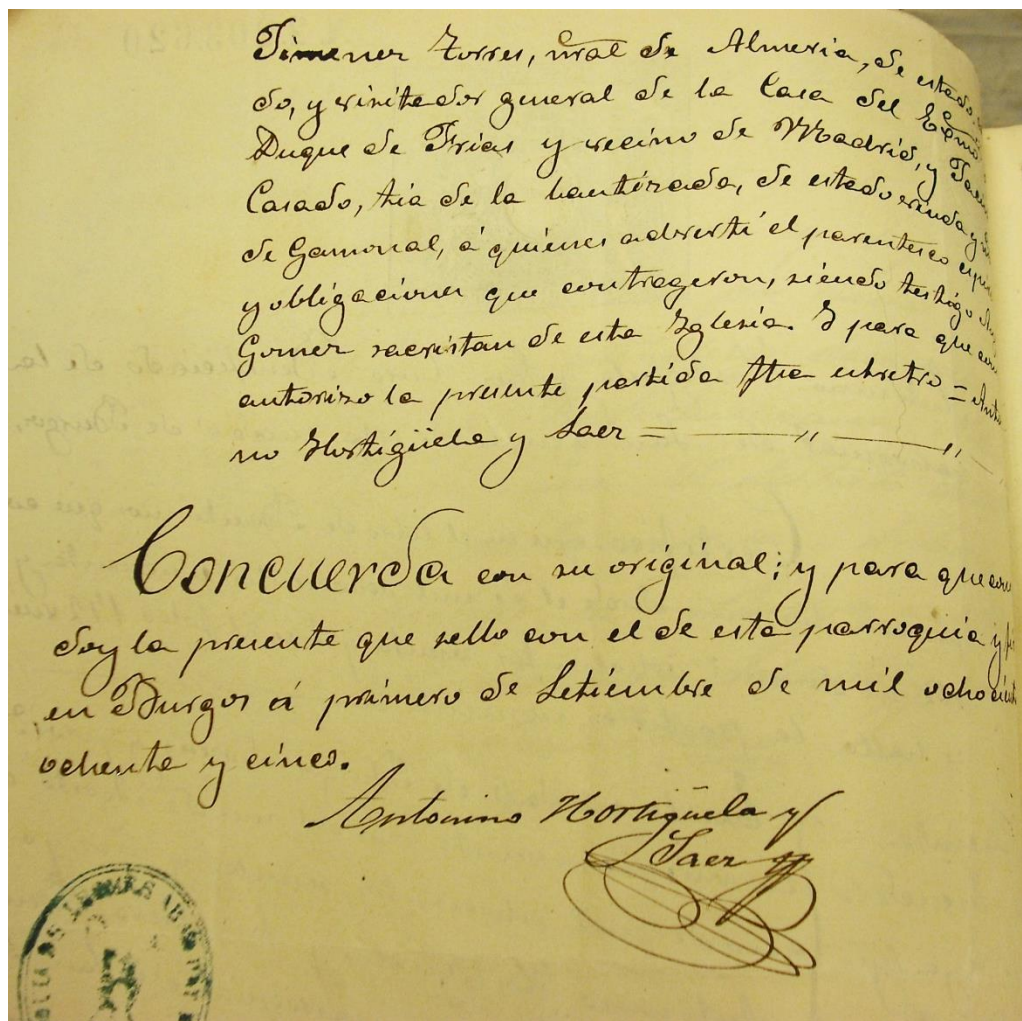 Jimenez Torres, nral de Almeria, de estado
do, y visitador general de la Casa del Excmo
Duque de Frias y vecino de Madrid, y
Casado, tia de la bautizada, de estado viuda y
de Gamonal, á quienes advertí el parentesco
y obligaciones que contrageron, siendo testigo
Gomez sacristan de esta Iglesia. Y para que
autorizo la presente partida fha ut retro =
no Hortigüela y Saez =
Concuerda con su original; y para que con
doy la presente que sello con el de esta parroquia y
en Burgos á primero de Setiembre de mil ochocient
ochenta y cinco.
Antonino Hortigüela y
Saez